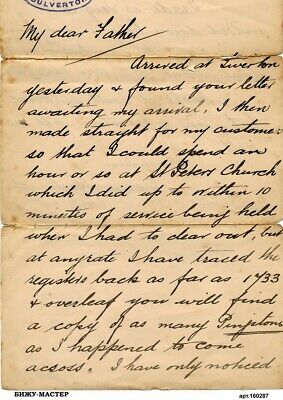 DULVERTON
My dear Father
Arrived at Tiverton
yesterday & found your letter
awaiting my arrival. I then
made straight for my custome
so that I could spend an
hour or so at St Peters Church
which I did up to within 10
minutes of service being held
when I had to clear out, but
at anyrate I have traced the
registers back as far as 1733
& overleaf you will find
a copy of as many
as I happened to come
across. I have only noticed
БИЖУ-МАСТЕР
арт.160287